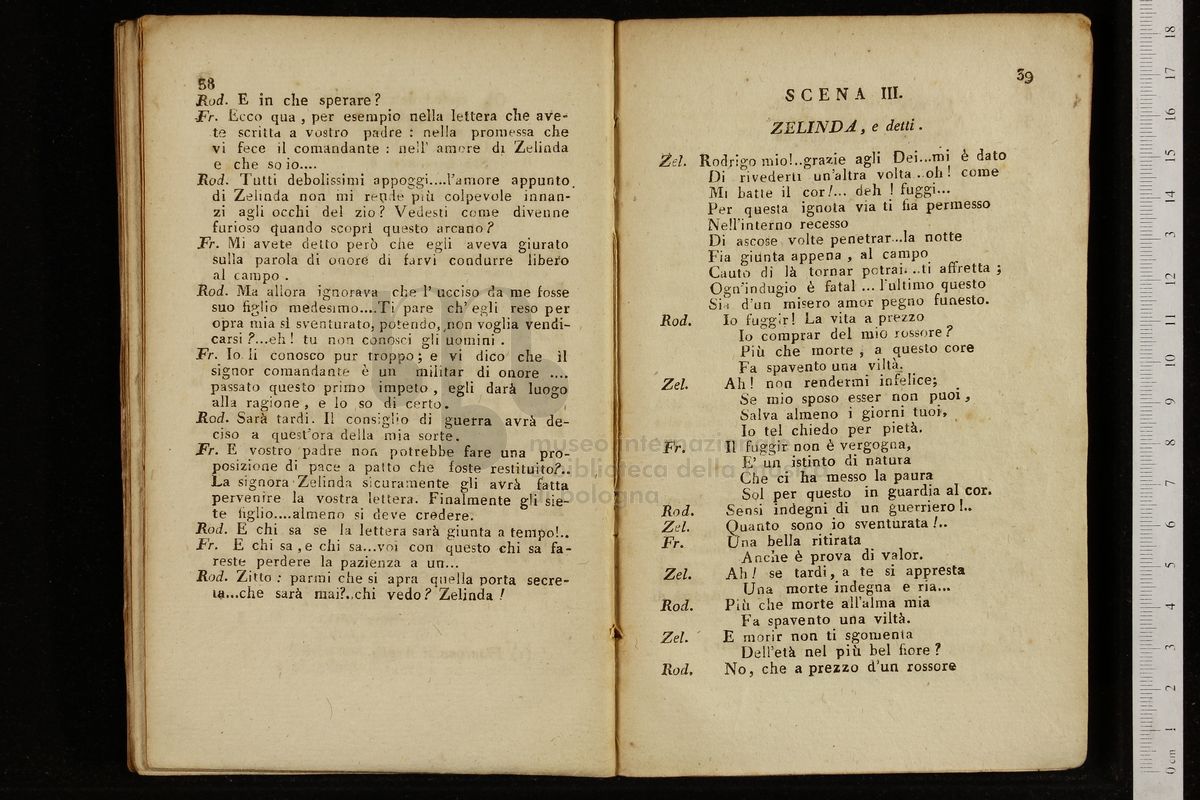 58
Rod. E in che sperare?
Fr. Ecco qua, per esempio nella lettera che ave-
te scritta a vostro padre: nella promessa che
vi fece il comandante: nell' amore di Zelinda
e che so io....
Rod. Tutti debolissimi appoggi....l'amore appunto
di Zelinda non mi rende più colpevole innan-
zi agli occhi del zio? Vedesti come divenne
furioso quando scoprì questo arcano?
Fr. Mi avete detto però che egli aveva giurato
sulla parola di onore di farvi condurre libero
al campo.
Rod. Ma allora ignorava che l'ucciso da me fosse
suo figlio medesimo....Ti pare ch'egli reso per
opra mia sì sventurato, potendo, non voglia vendi-
carsi?...eh! tu non conosci gli uomini.
Fr. Io li conosco pur troppo; e vi dico che il
signor comandante è un militar di onore ....
passato questo primo impeto, egli darà luogo
alla ragione, e lo so di certo.
Rod. Sarà tardi. Il consiglio di guerra avrà de-
ciso a quest'ora della mia sorte.
Fr. E vostro padre non potrebbe fare una pro-
posizione di pace a patto che foste restituito?..
La signora Zelinda sicuramente gli avrà fatta
pervenire la vostra lettera. Finalmente gli sie-
te figlio....almeno si deve credere.
Rod. E chi sa se la lettera sarà giunta a tempo!..
Fr. E chi sa, e chi sa...voi con questo chi sa fa-
reste perdere la pazienza a un...
Rod. Zitto: parmi che si apra quella porta secre-
ta...che sarà mai?..chi vedo? Zelinda!
39
SCENA III.
ZELINDA, e detti.
Zel. Rodrigo mio!..grazie agli Dei...mi è dato
Di rivederti un'altra volta..oh! come
Mi batte il cor!... deh! fuggi...
Per questa ignota via ti fia permesso
Nell'interno recesso
Di ascose volte penetrar...la notte
Fia giunta appena, al campo
Cauto di là tornar potrai...ti affretta;
Ogn'indugio è fatal ... l'ultimo questo
Sia d'un misero amor pegno funesto.
Rod. Io fuggir! La vita a prezzo
Io comprar del mio rossore?
Più che morte, a questo core
Fa spavento una viltà.
Zel. Ah! non rendermi infelice;
Se mio sposo esser non puoi,
Salva almeno i giorni tuoi,
Io tel chiedo per pietà.
Fr. Il fuggir non è vergogna,
E' un istinto di natura
Che ci ha messo la paura
Sol per questo in guardia al cor.
Rod. Sensi indegni di un guerriero!..
Zel. Quanto sono io sventurata!..
Fr. Una bella ritirata
Anche è prova di valor.
Zel. Ah! se tardi, a te si appresta
Una morte indegna e ria...
Rod. Più che morte all'alma mia
Fa spavento una viltà.
Zel. E morir non ti sgomenta
Dell'età nel più bel fiore?
Rod. No, che a prezzo d'un rossore
museo internazionale
biblioteca della musica
di bologna
0 cm 1 2 3 4 5 6 7 8 9 10 11 12 13 14 15 16 17 18